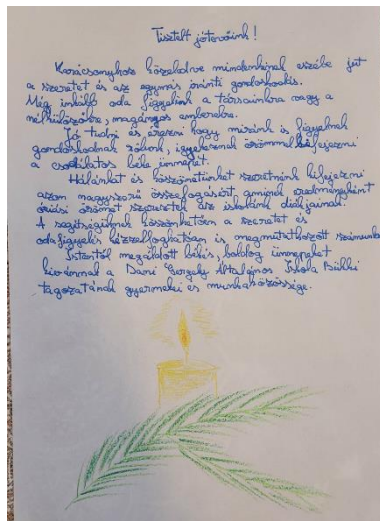 Tisztelt jótevőink!
Karácsonyhoz közeledve mindenkinek eszébe jut
a szeretet és az egymás iránti gondoskodás.
Még inkább oda figyelünk a társainkra vagy a
nélkülözőkre, magányos emberekre.
Jó tudni és érezni hogy miránk is figyelnek
gondoskodnak rólunk, igyekeznek örömmel
a csodálatos béke ünnepét.
Hálánkat és köszönetünket szeretnénk kifejezni
azon nagyszerű összefogásért, aminek eredményeként
óriási örömet szereztek az iskolánk diákjainak.
A segítségüknek köszönhetően a szeretet és
odafigyelés kézzelfoghatóan is megmutatkozott számunkra
Istentől megáldott békés, boldog ünnepeket
kívánnak a Dani Gergely Általános Iskola Bükki
tagozatának gyermekei és munkaközössége.